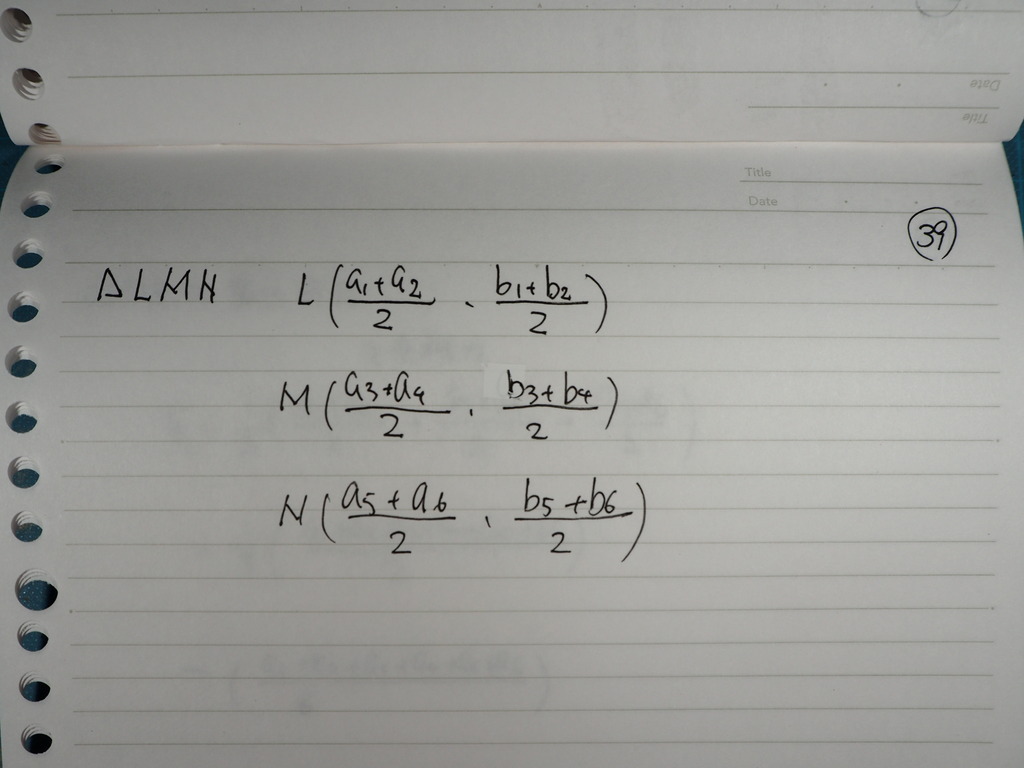 Date
Title
Title
Date
39
△LMN L(a₁+a₂/2, b₁+b₂/2)
M(a₃+a₄/2, b₃+b₄/2)
N(a₅+a₆/2, b₅+b₆/2)